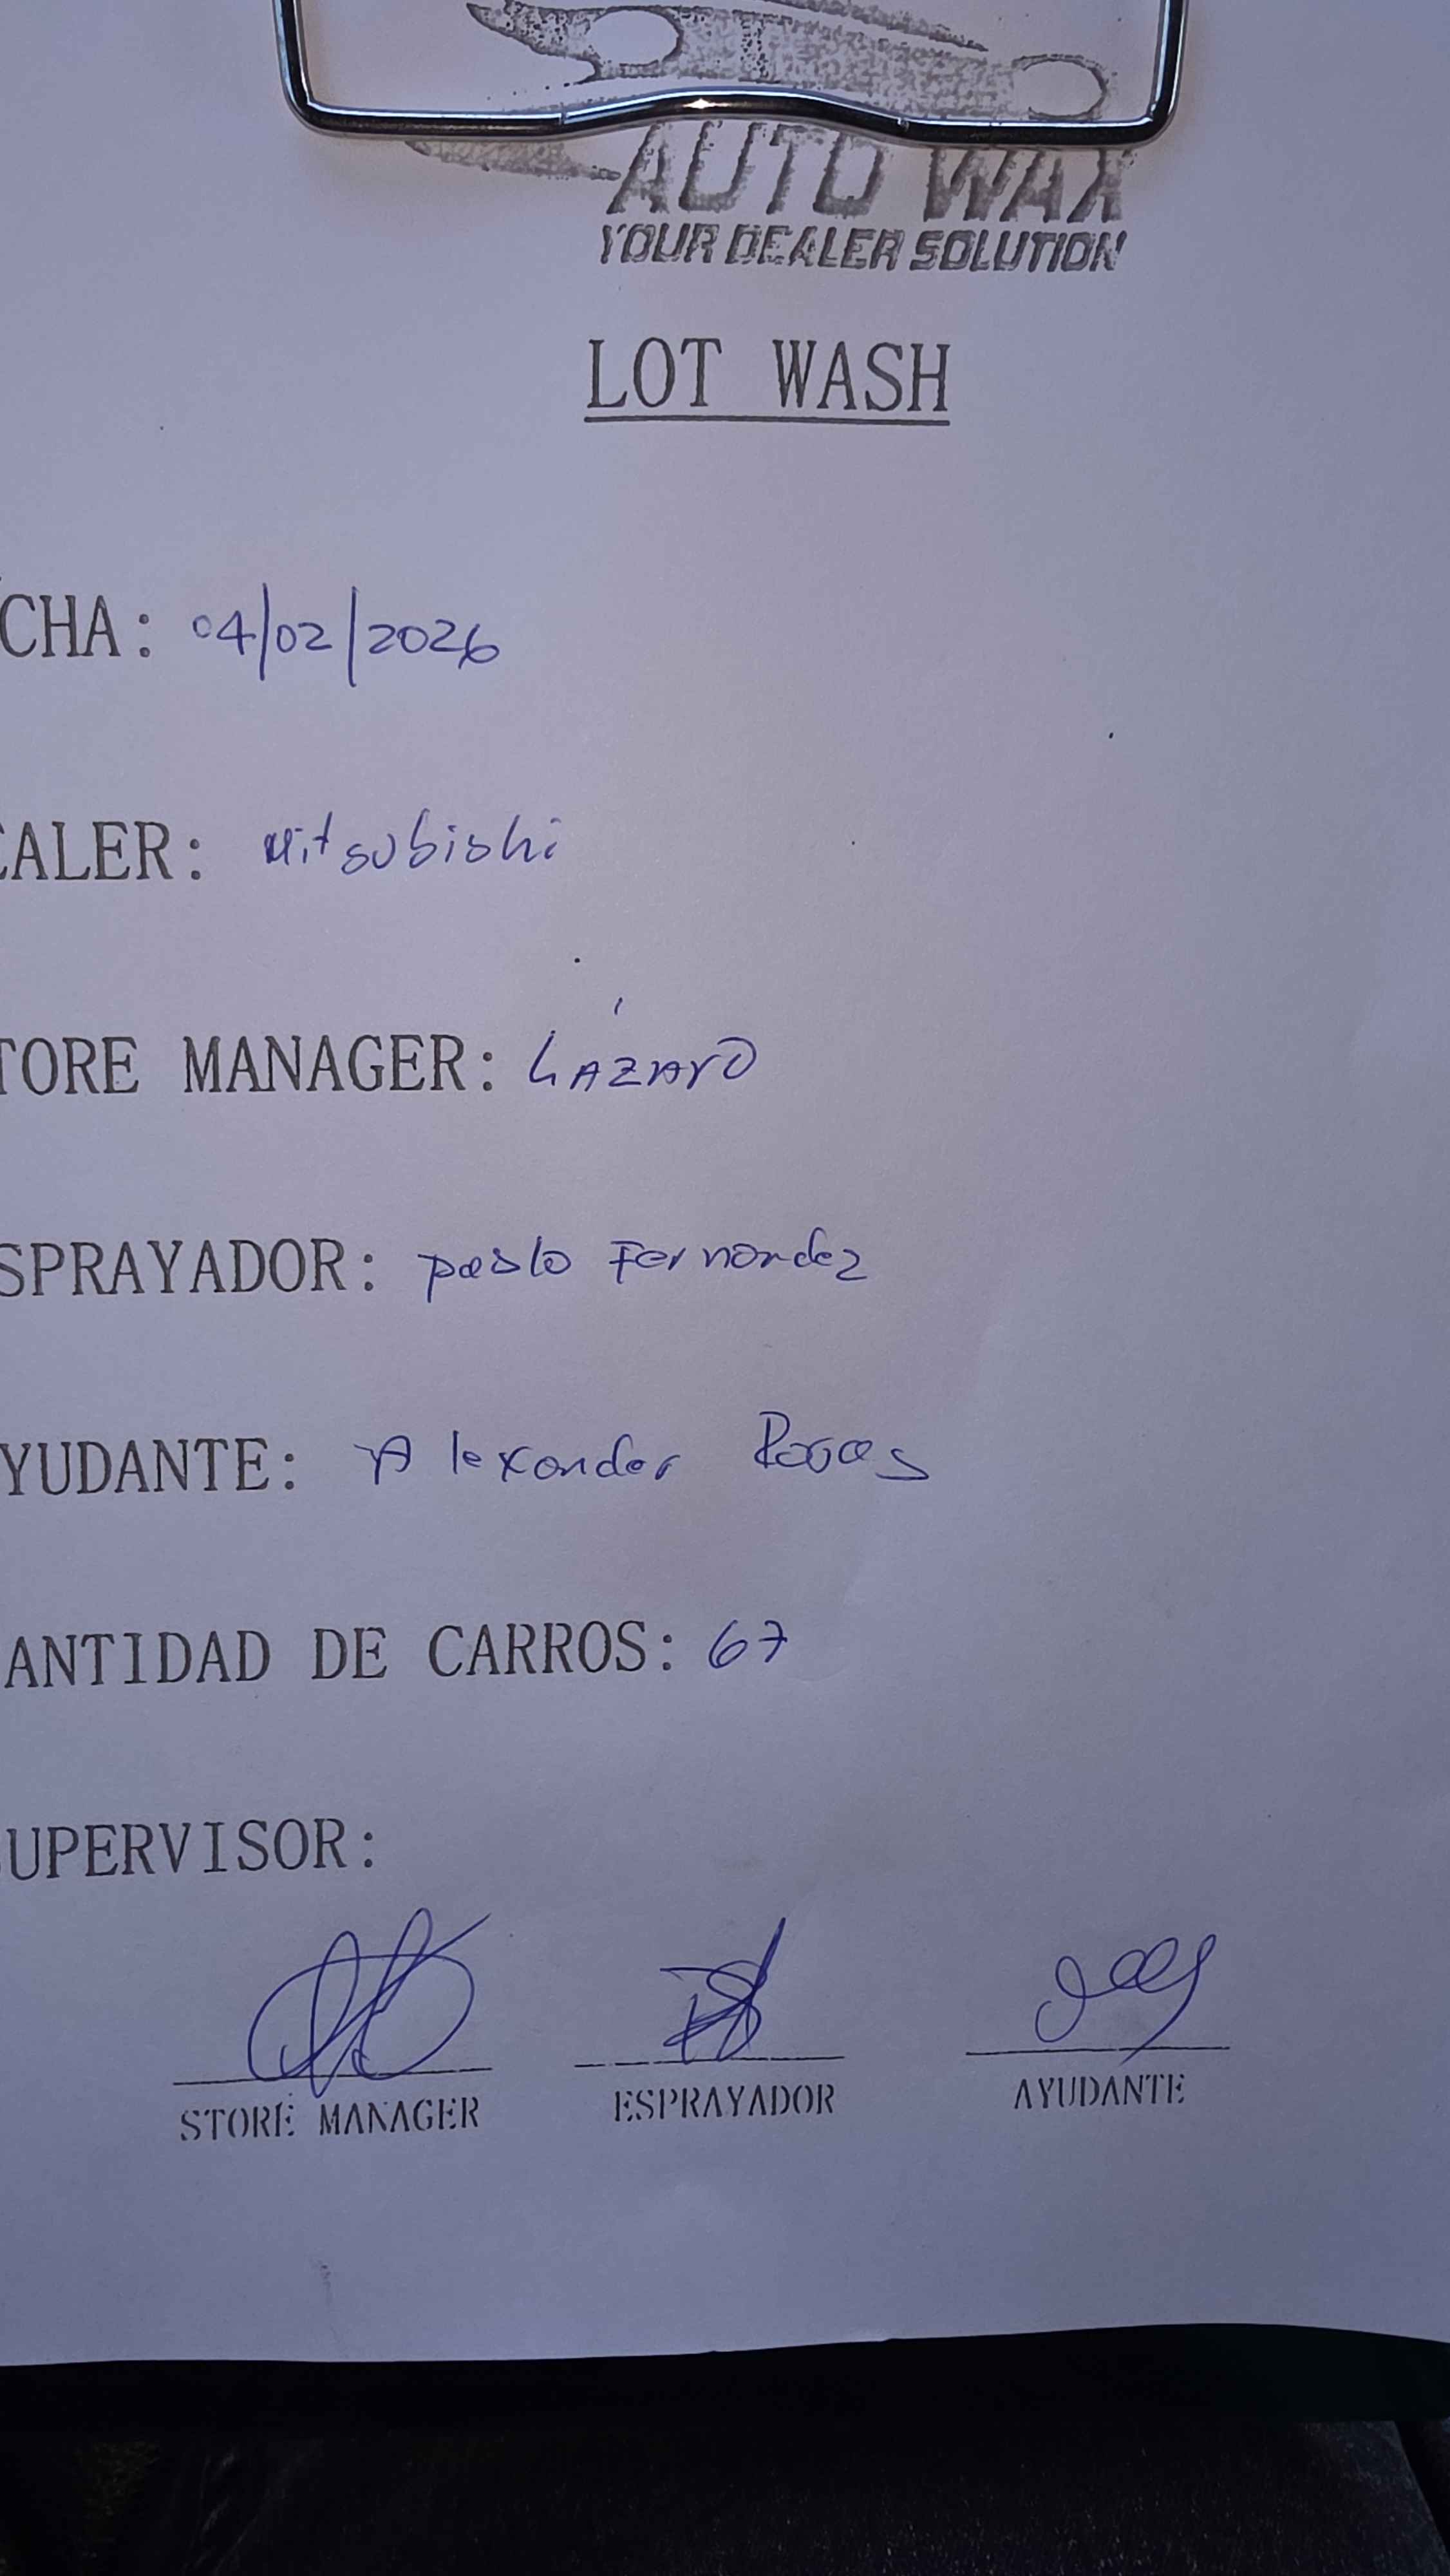 AUTO WAX
YOUR DEALER SOLUTION
LOT WASH
CHA: 04/02/2026
EALER: Mitsubishi
TORE MANAGER: LÁZARO
SPRAYADOR: pablo Fernandez
YUDANTE: Alexander Rojas
ANTIDAD DE CARROS: 67
UPERVISOR:
STORE MANAGER ESPRAYADOR AYUDANTE